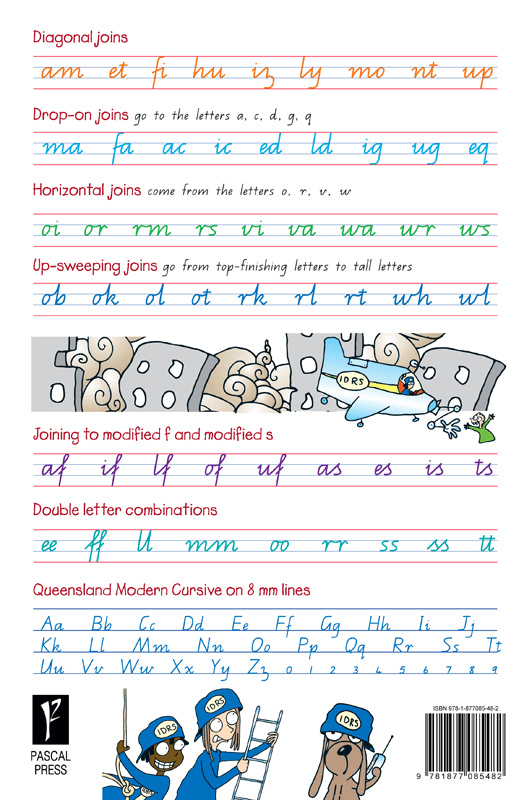 Diagonal joins
am et fi hu iz ly mo nt up
Drop-on joins go to the letters a, c, d, g, q
ma fa ac ic ed ld ig ug eq
Horizontal joins come from the letters o, r, v, w
oi or rm rs vi va wa wr ws
Up-sweeping joins go from top-finishing letters to tall letters
ob ok ol ot rk rl rt wh wl
IDRS
Joining to modified f and modified s
af if lf of uf as es is ts
Double letter combinations
ee ff ll mm oo rr ss ss tt
Queensland Modern Cursive on 8 mm lines
Aa Bb Cc Dd Ee Ff Gg Hh Ii Jj
Kk Ll Mm Nn Oo Pp Qq Rr Ss Tt
Uu Vv Ww Xx Yy Zz 0 1 2 3 4 5 6 7 8 9
IDRS
IDRS
IDRS
PASCAL
PRESS
ISBN 978-1-877085-48-2
9 781877 085482